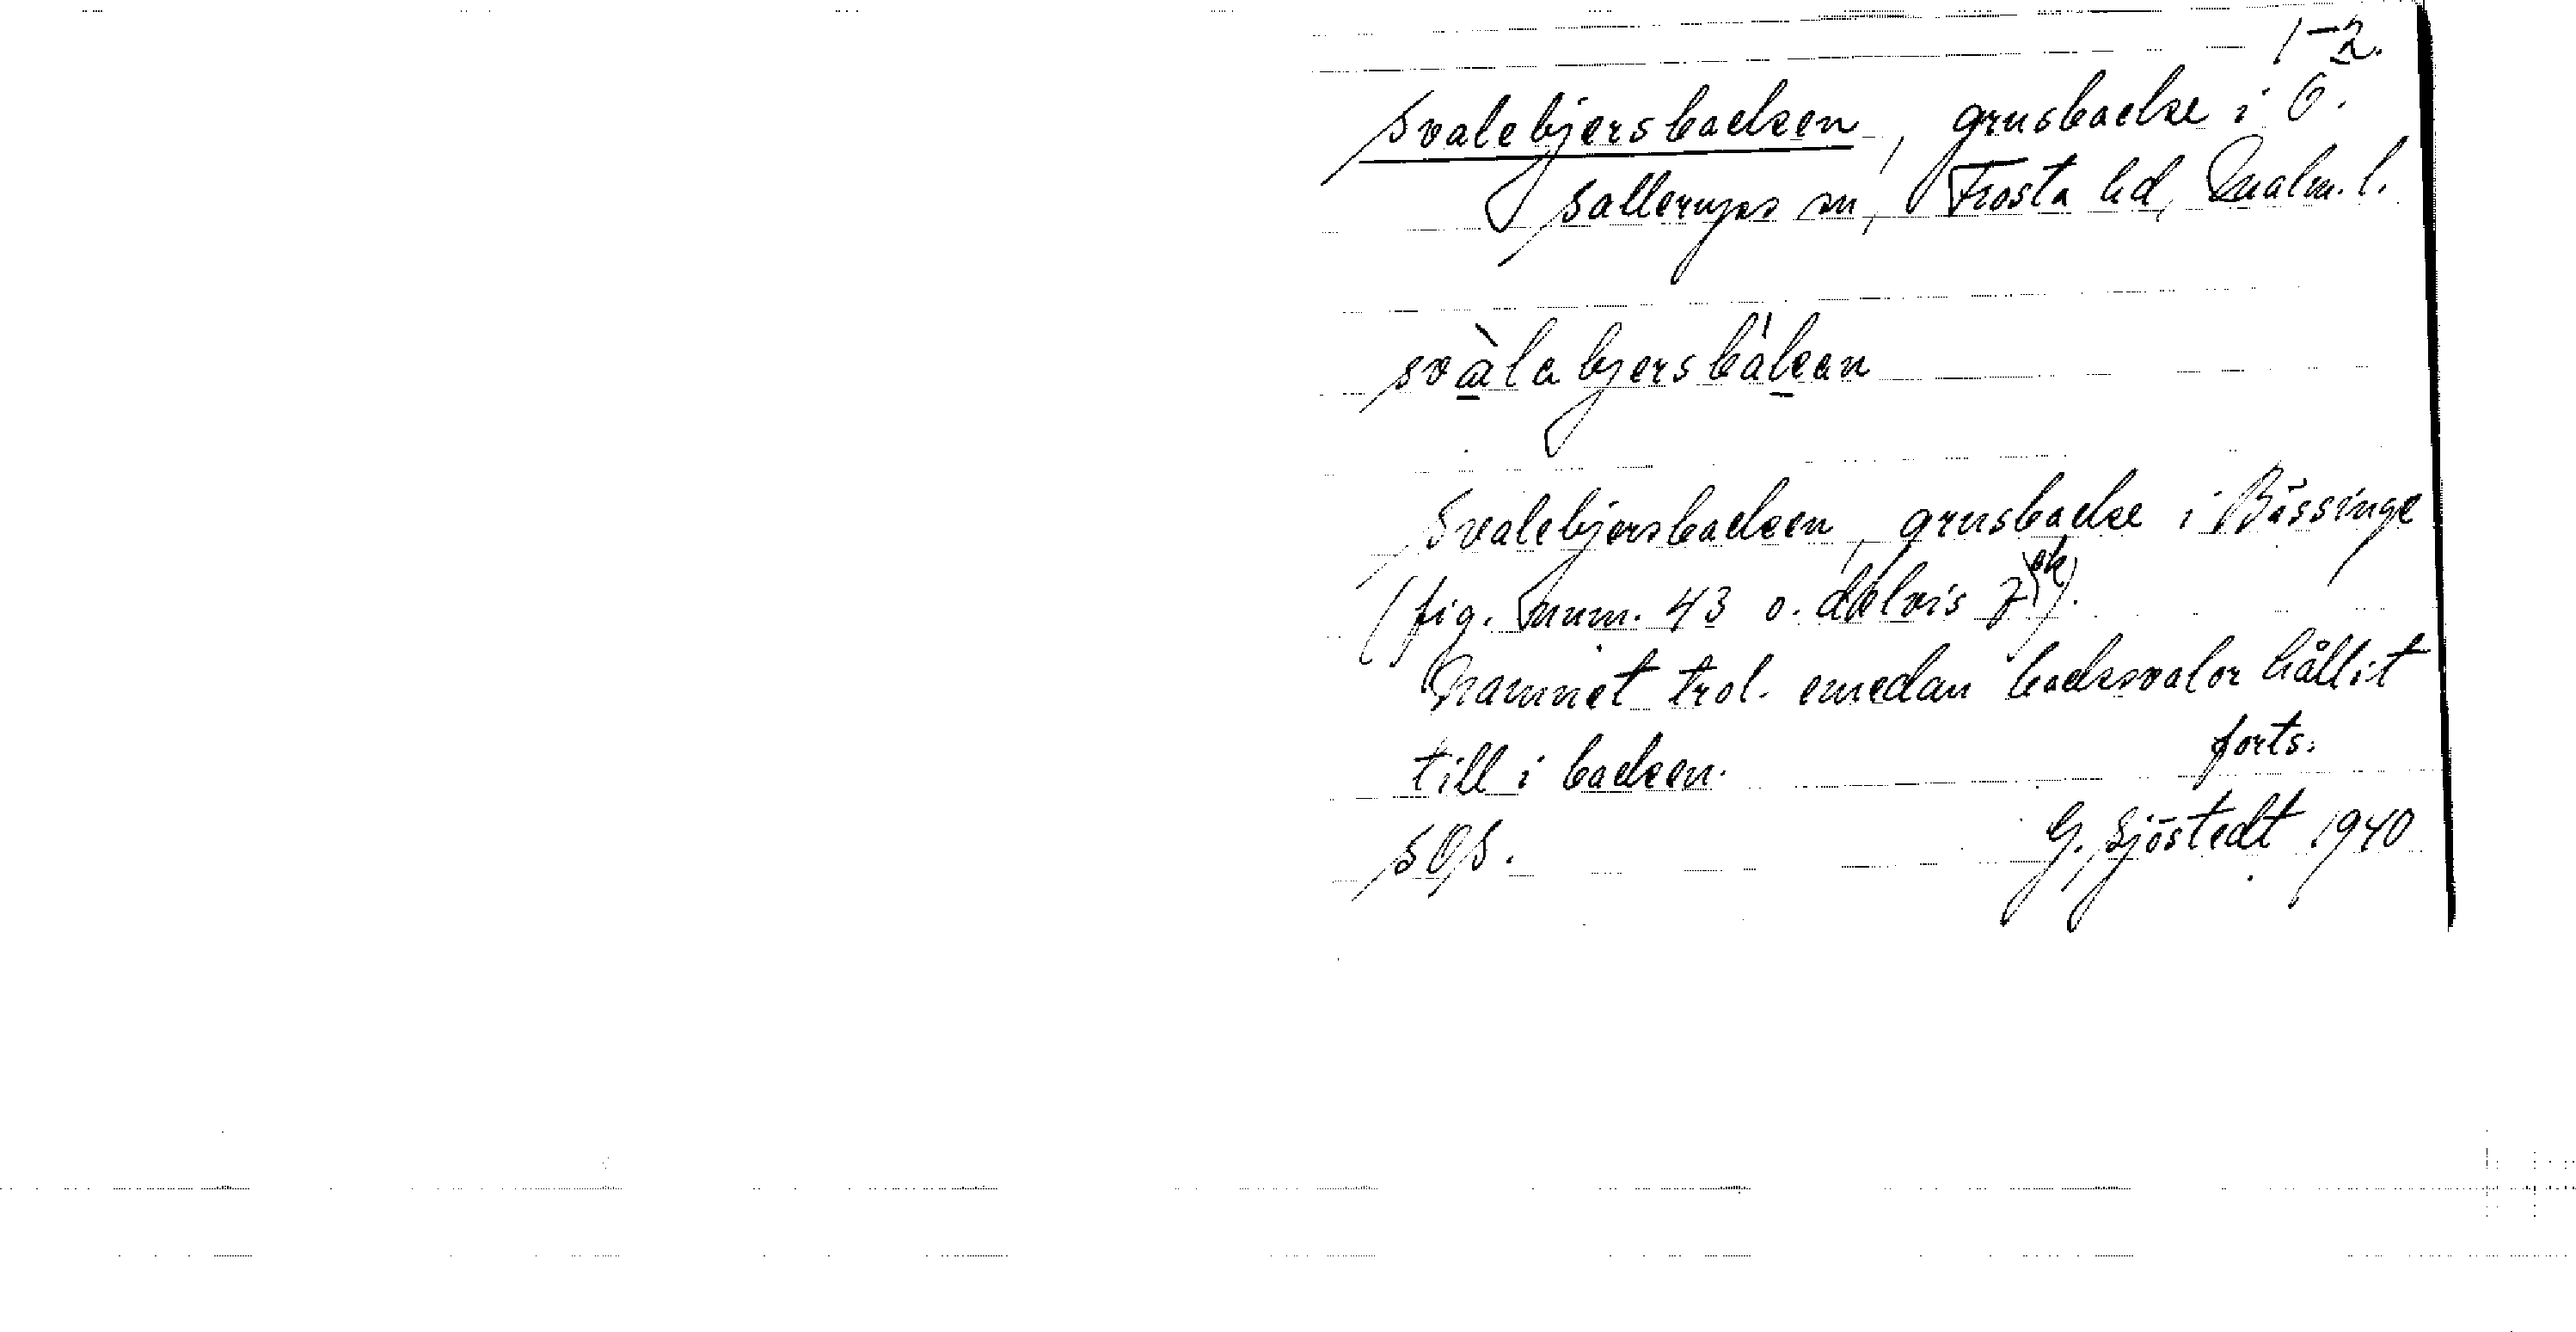 1-2.
Svalebjersbacken, grusbacke i Ö.
Sallerups sn, Frosta hd, Malm. l.
svàlabjersbákan
Svalebjersbacken, grusbacke i Bässinge
(fig. num. 43 o. delvis 7 ).
Namnet trol. emedan backsvalor hållit
till i backen.
forts.
SOS. G. Sjöstedt 1940